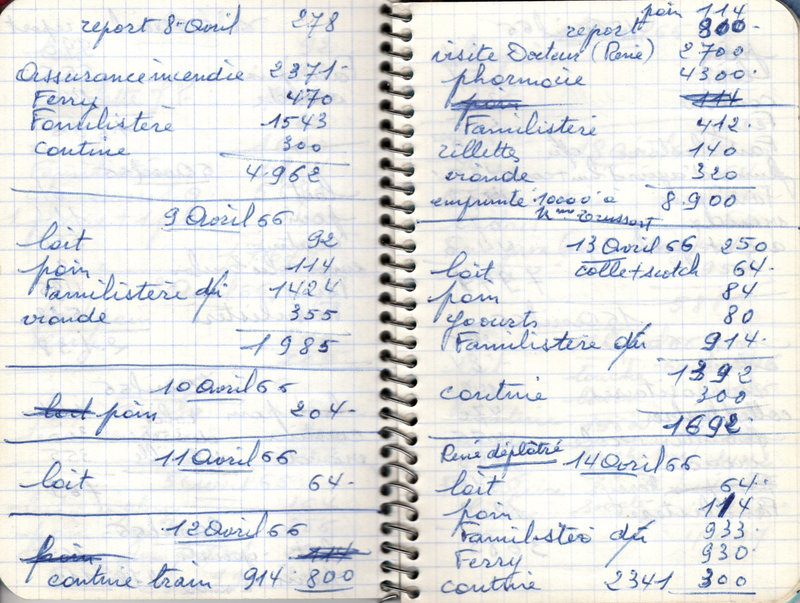 report 8 Avril 278
Assurance incendie 2371.
Ferry 470
Familistère 1543
cantine 300
4.962
9 Avril 66
lait 92
pain 114
Familistère dû 1424
viande 355
1985
10 Avril 66
pain 204.
11 Avril 66
lait 64.
12 Avril 66
pain 114
cantine train 914. 800
pain 114
report 800.
visite Docteur (René) 2700
pharmacie 4300.
pain 114
Familistère 412.
rillettes 140
viande 320
emprunté 10000 à 8.900
13 Avril 66 250
lait colle+scotch 64.
pain 84
yaourts 80
Familistère dû 914.
1392
cantine 300
1692.
René déplâtré 14 Avril 66
lait 64.
pain 114
Familistère dû 933.
Ferry 930.
cantine 2341 300